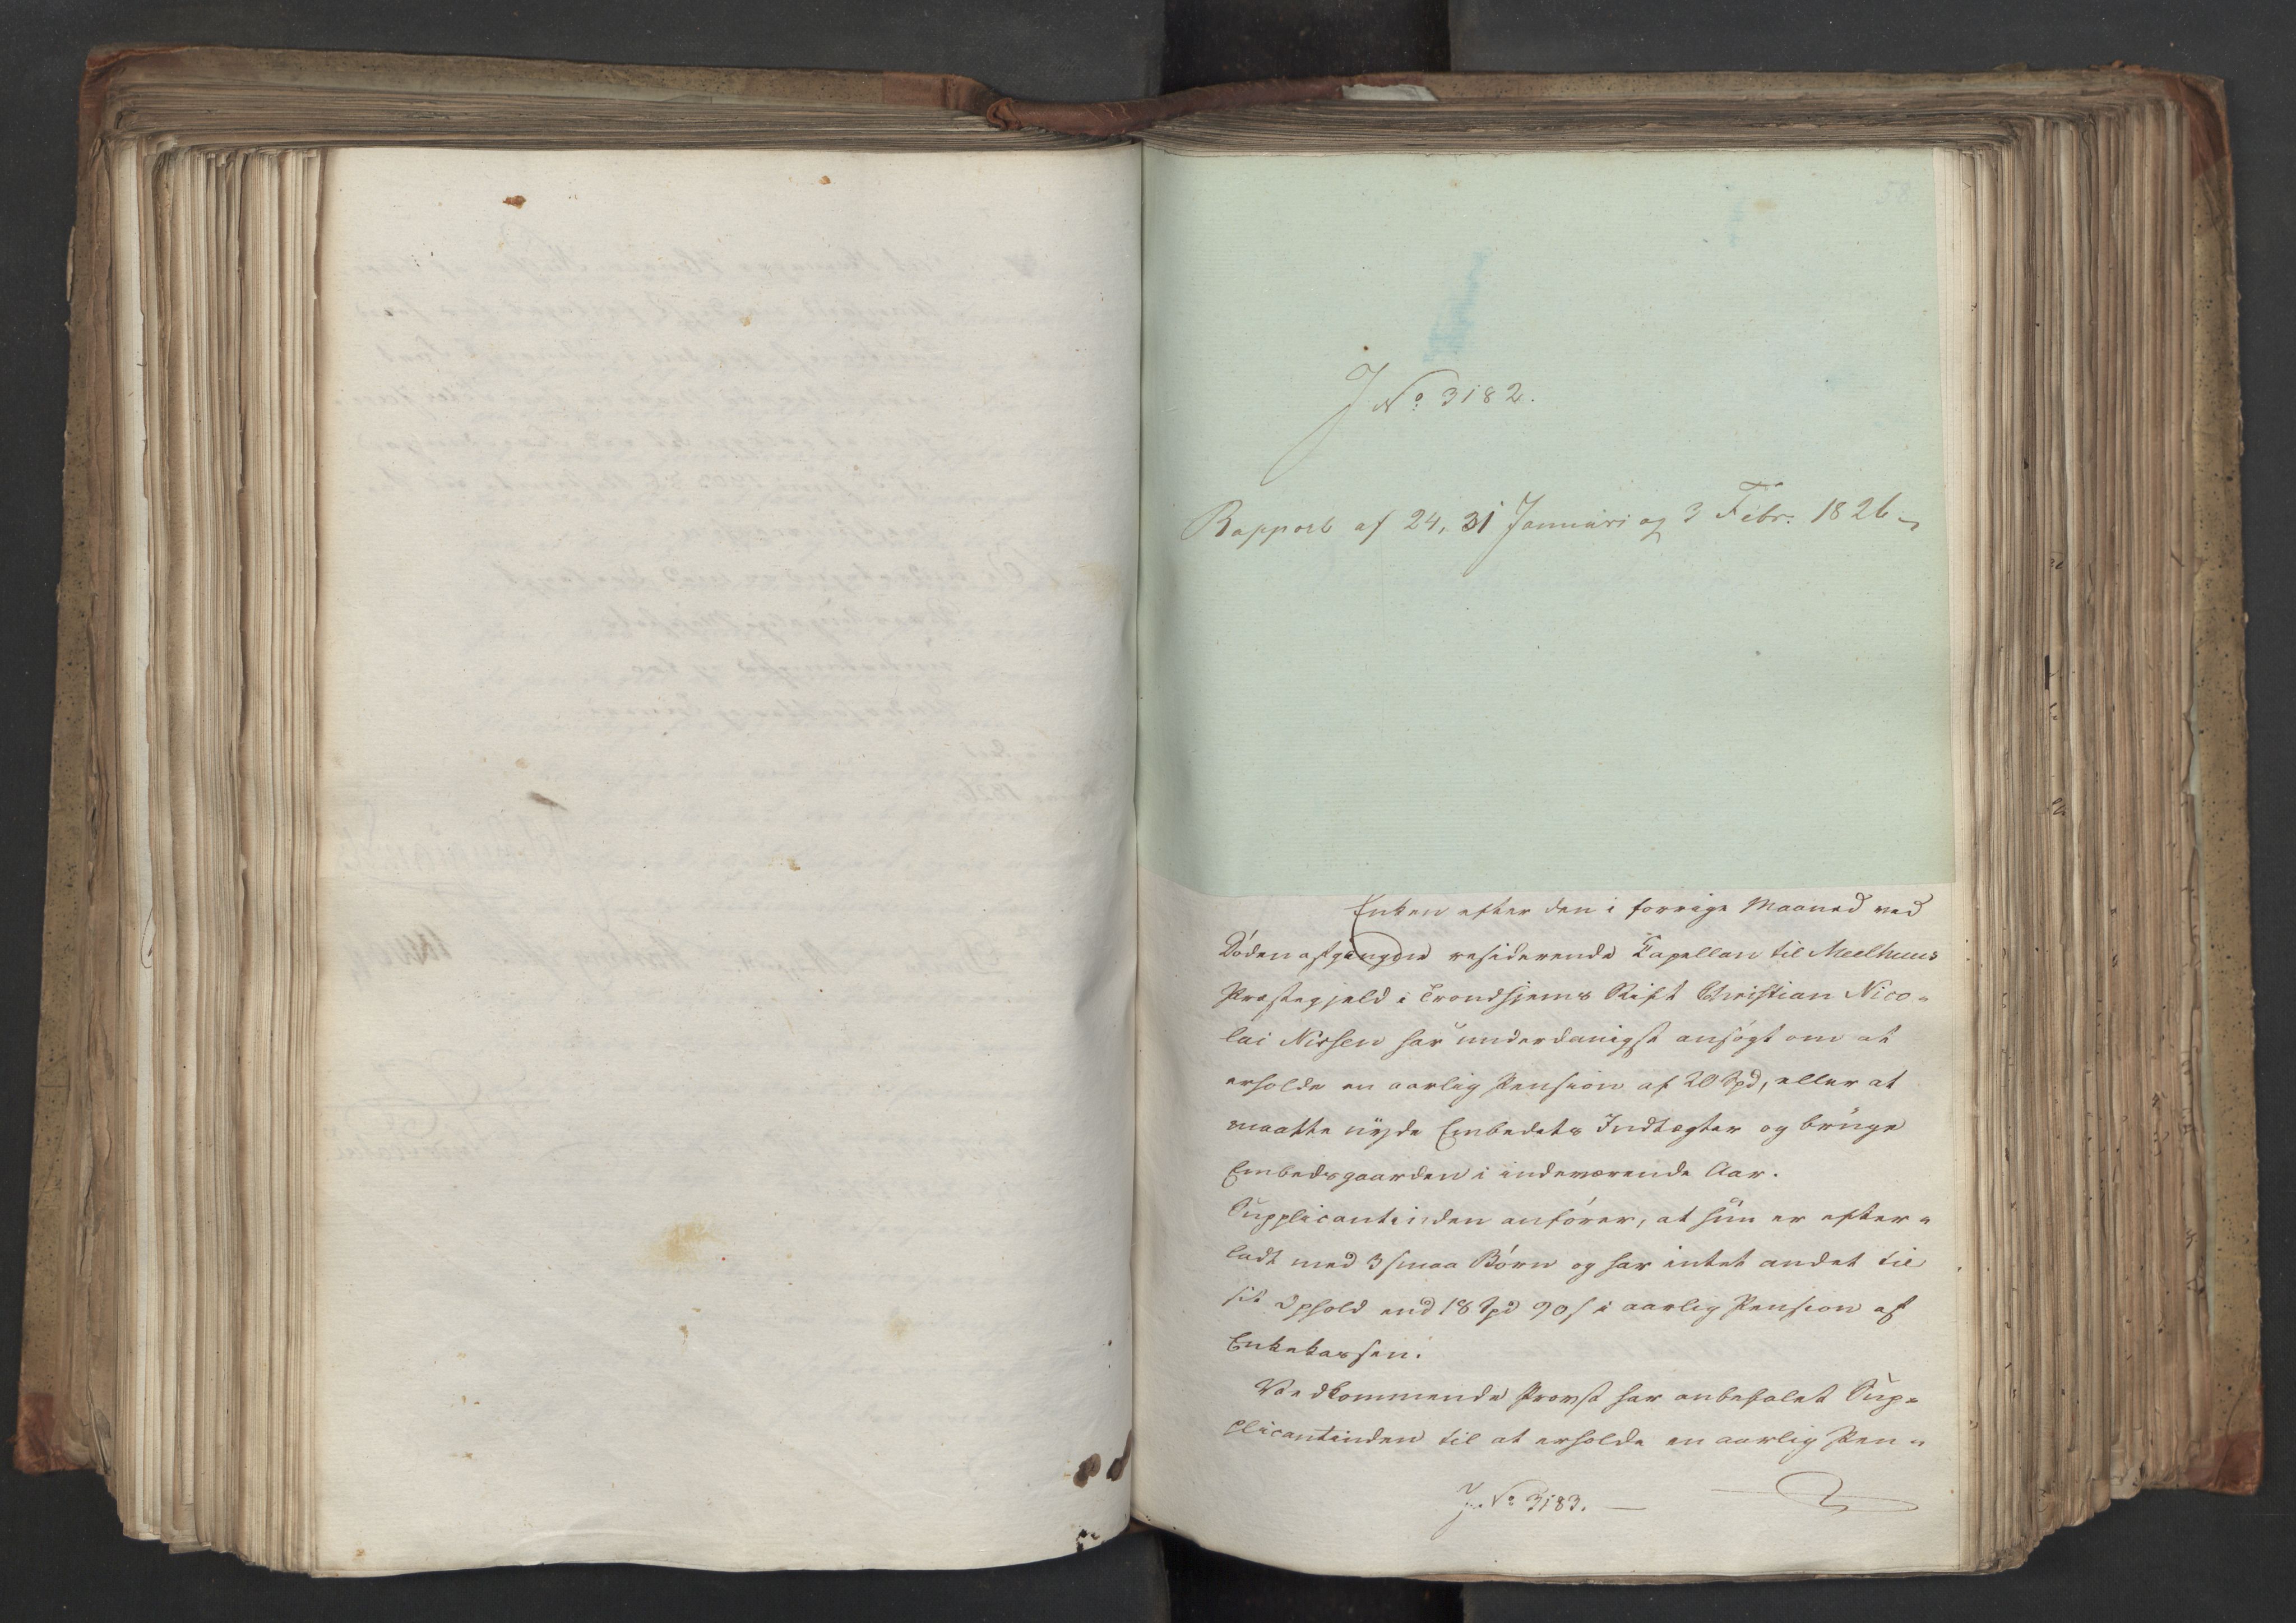 58
J No 3182.
Rapport af 24, 31 Januari og 3 Febr. 1826
Enken efter den i forrige Maaned ved
Døden afgangne residerende Capellan til Meelhuus
Præstegjeld i Trondhjems Stift Christian Nico-
lai Nissen har underdanigst ansøgt om at
erholde en aarlig Pension af 20 Spd, eller at
maatte nyde Embedets Indtægter og bruge
Embedsgaarden i indeværende Aar.
Supplicantinden anfører, at hun er efter-
ladt med 3 smaa Børn og har intet andet til
sit Ophold end 18 Spd 90 s i aarlig Pension af
Enkekassen.
Vedkommende Provst har anbefalet Sup-
plicantinden til at erholde en aarlig Pen-
J. No 3183.